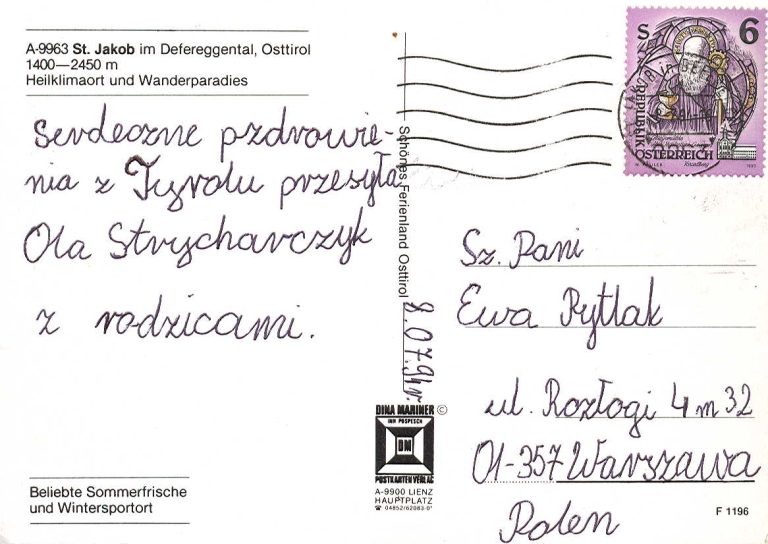 A-9963 St. Jakob im Defereggental, Osttirol
1400—2450 m
Heilklimaort und Wanderparadies
Serdeczne pzdrowie-
nia z Tyrolu przesyła
Ola Strycharczyk
z rodzicami.
Beliebte Sommerfrische
und Wintersportort
Schönes Ferienland Osttirol
8.07.94r.
DINA MARINER ©
INH POSPESCH
DM
POSTKARTEN VERLAG
A-9900 LIENZ
HAUPTPLATZ
☎ 04852/62083-0*
S 6
REPUBLIK
ÖSTERREICH
Sz. Pani
Ewa Rytlak
ul. Rozłogi 4 m 32
01-357 Warszawa
Polen
F 1196